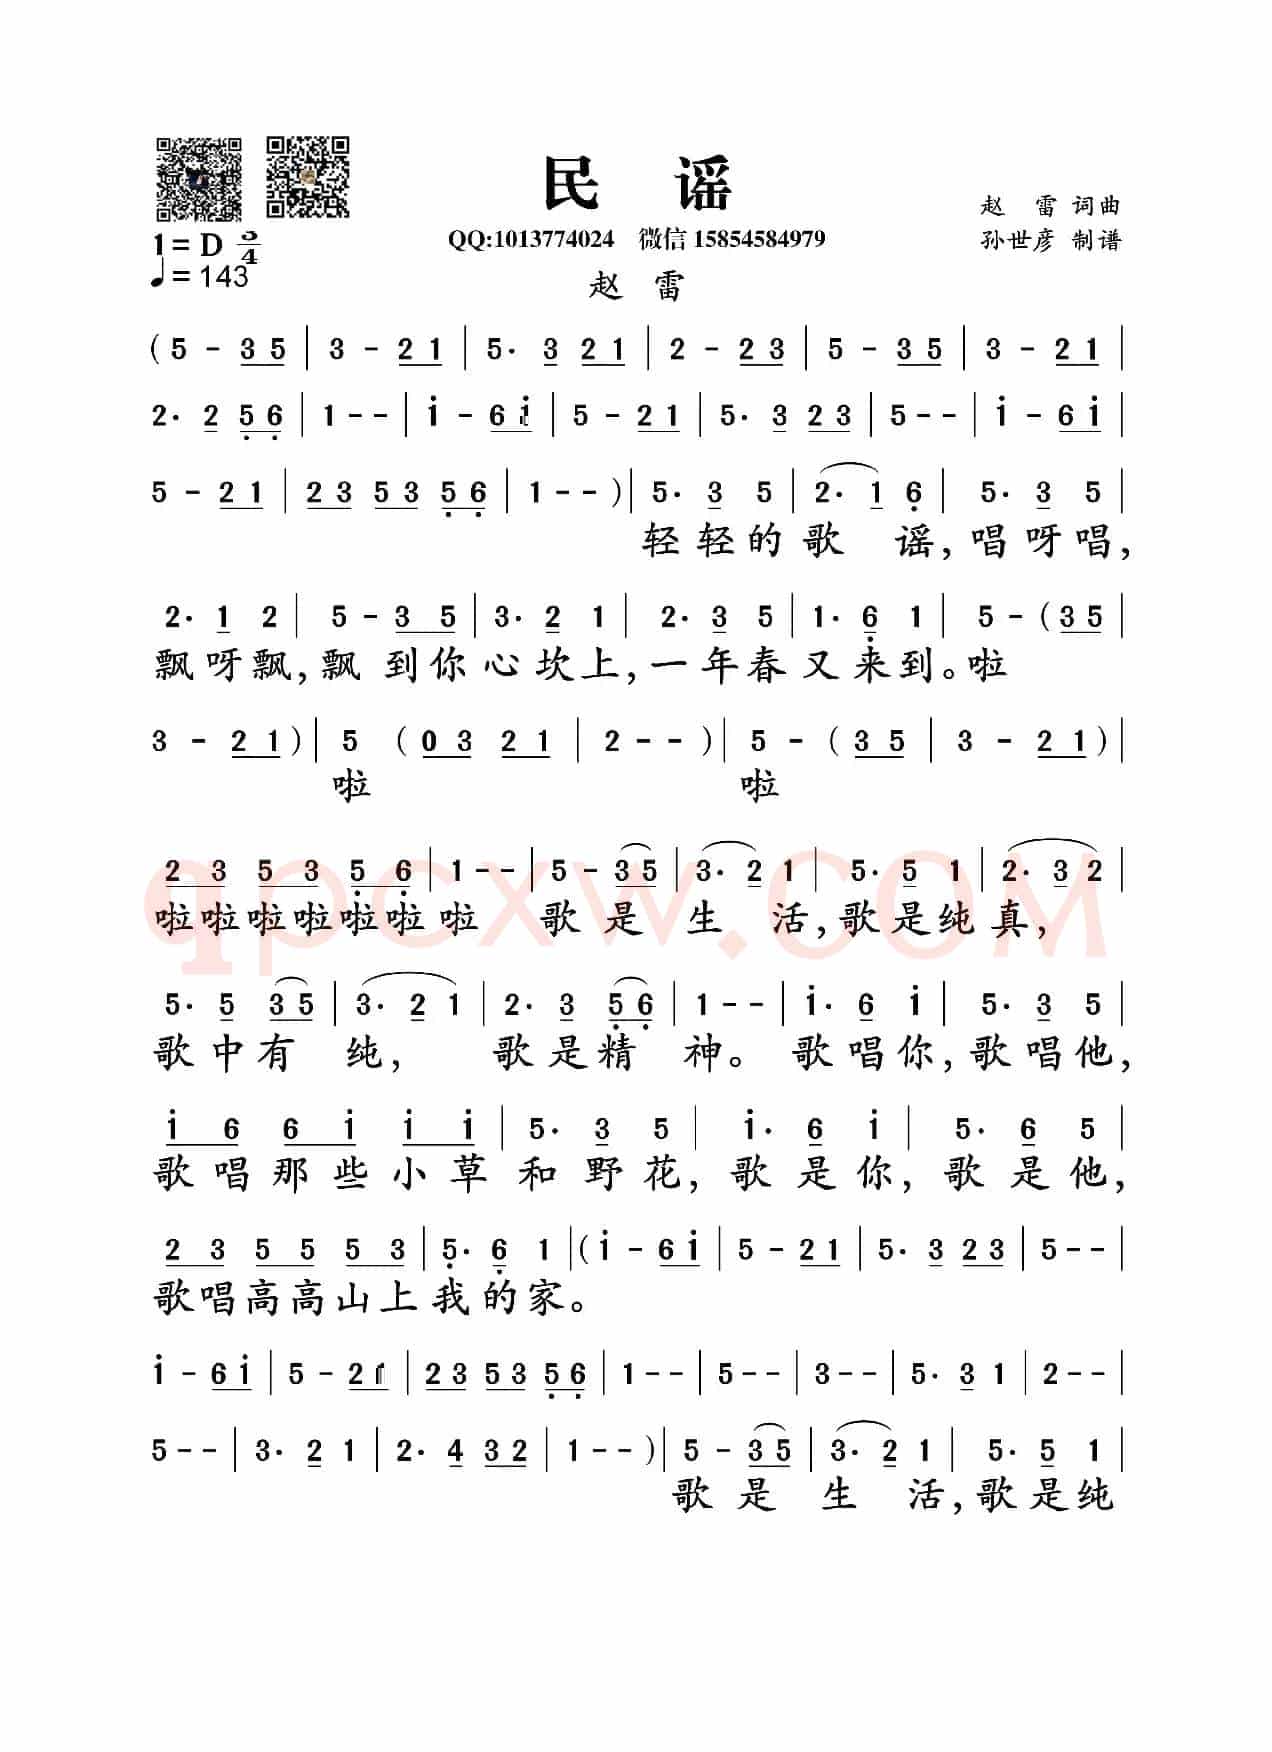 民 谣
赵 雷 词曲
1=D 3/4
QQ:1013774024 微信15854584979
孙世彦 制谱
♩=143
赵 雷
(5 - 3 5 | 3 - 2 1 | 5· 3 2 1 | 2 - 2 3 | 5 - 3 5 | 3 - 2 1 |
2· 2 5̣ 6̣ | 1 - - | i - 6 i | 5 - 2 1 | 5· 3 2 3 | 5 - - | i - 6 i |
5 - 2 1 | 2 3 5 3 5̣ 6̣ | 1 - - ) | 5· 3 5 | 2· 1 6̣ | 5· 3 5 |
轻轻的歌 谣,唱呀唱,
2· 1 2 | 5 - 3 5 | 3· 2 1 | 2· 3 5 | 1· 6̣ 1 | 5 - (3 5 |
飘呀飘,飘 到你心坎上,一年春又来到。啦
3 - 2 1 ) | 5 (0 3 2 1 | 2 - - ) | 5 - (3 5 | 3 - 2 1 ) |
啦 啦
2 3 5 3 5̣ 6̣ | 1 - - | 5 - 3 5 | 3· 2 1 | 5· 5 1 | 2· 3 2 |
qpcxw.COM
啦啦啦啦啦啦啦 歌是 生 活,歌是纯真,
5· 5 3 5 | 3· 2 1 | 2· 3 5̣ 6̣ | 1 - - | i· 6 i | 5· 3 5 |
歌中有 纯, 歌是精 神。歌唱你,歌唱他,
i 6 6 i i i | 5· 3 5 | i· 6 i | 5· 6 5 |
歌唱那些小草和野花,歌是你,歌是他,
2 3 5 5 5 3 | 5̣· 6̣ 1 | (i - 6 i | 5 - 2 1 | 5· 3 2 3 | 5 - -
歌唱高高山上我的家。
i - 6 i | 5 - 2 1 | 2 3 5 3 5̣ 6̣ | 1 - - | 5 - - | 3 - - | 5· 3 1 | 2 - - |
5 - - | 3· 2 1 | 2· 4 3 2 | 1 - - ) | 5 - 3 5 | 3· 2 1 | 5· 5 1 |
歌是 生 活,歌是纯